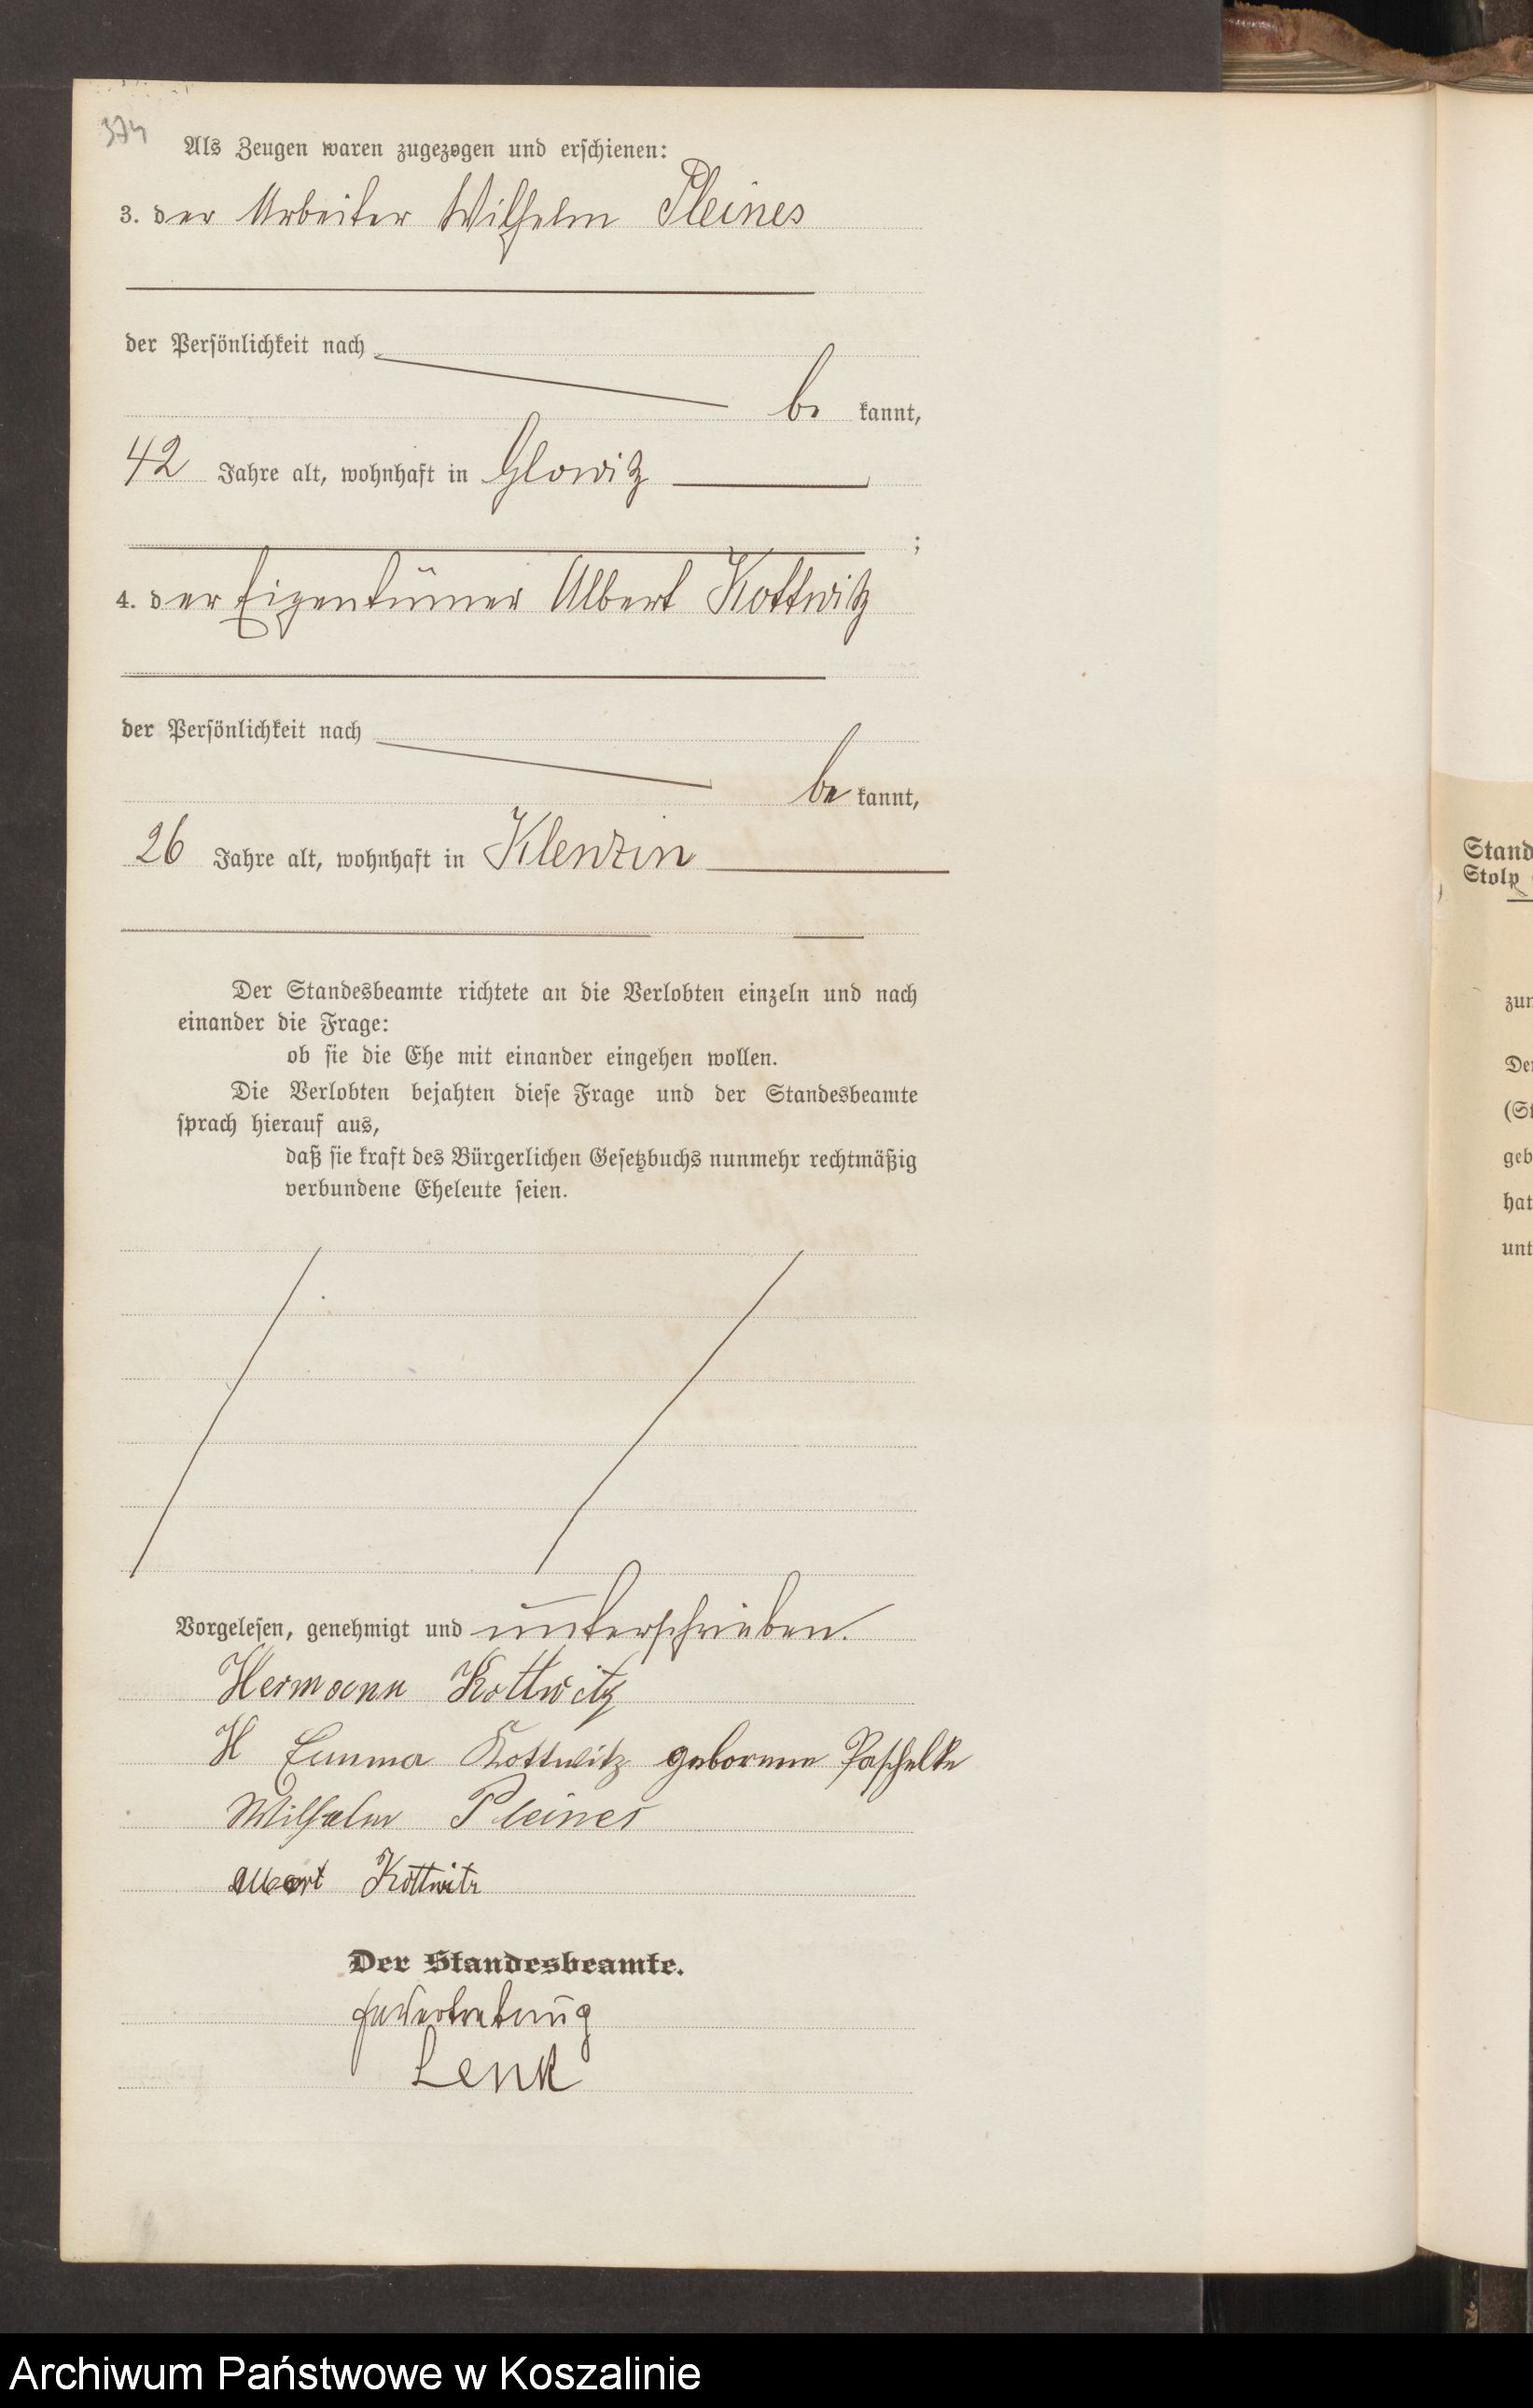 374
Als Zeugen waren zugezogen und erschienen:
3. der Arbeiter Wilhelm Pleines
der Persönlichkeit nach
be kannt,
42 Jahre alt, wohnhaft in Glowitz
;
4. der Eigentümer Albert Kottwitz
der Persönlichkeit nach
be kannt,
26 Jahre alt, wohnhaft in Klenzin
Der Standesbeamte richtete an die Verlobten einzeln und nach
einander die Frage:
ob sie die Ehe mit einander eingehen wollen.
Die Verlobten bejahten diese Frage und der Standesbeamte
sprach hierauf aus,
daß sie kraft des Bürgerlichen Gesetzbuchs nunmehr rechtmäßig
verbundene Eheleute seien.
Vorgelesen, genehmigt und unterschrieben.
Hermann Kottwitz
H Emma Kottwitz geborene Paschelke
Wilhelm Pleines
Albert Kottwitz
Der Standesbeamte.
In Vertretung
Lenk
Stand
Stolp
zum
Der
(St
geb
hat
unt
Archiwum Państwowe w Koszalinie